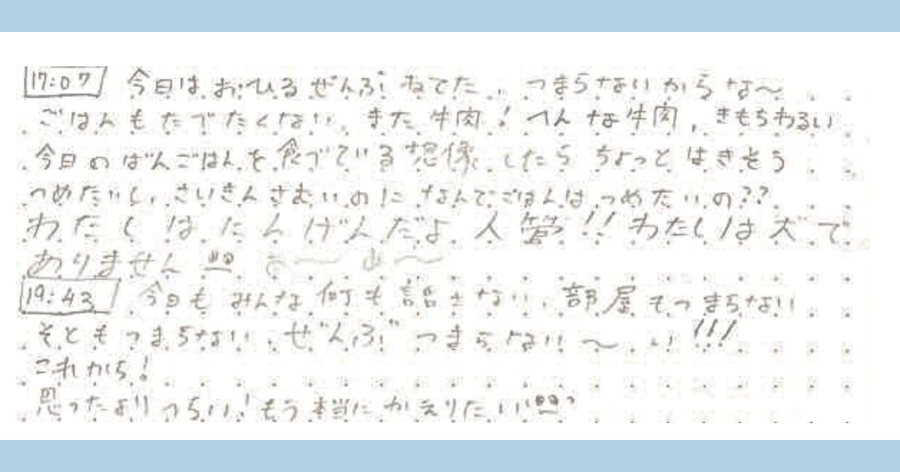 17:07 今日は おひる ぜんぶ ねてた、つまらないからな〜
ごはんもたべたくない。また牛肉！へんな牛肉、きもちわるい
今日のばんごはんを食べている想像したら ちょっとはきそう
つめたいし、さいきんさむいのに なんでごはんは つめたいの??
わたしはにんげんだよ 人間!! わたしは犬で
ありません
19:43 今日も みんな何も話さない、部屋もつまらない
そともつまらない、ぜんぶ つまらない〜い!!!
これから!
思ったよりつらい! もう本当に かえりたい